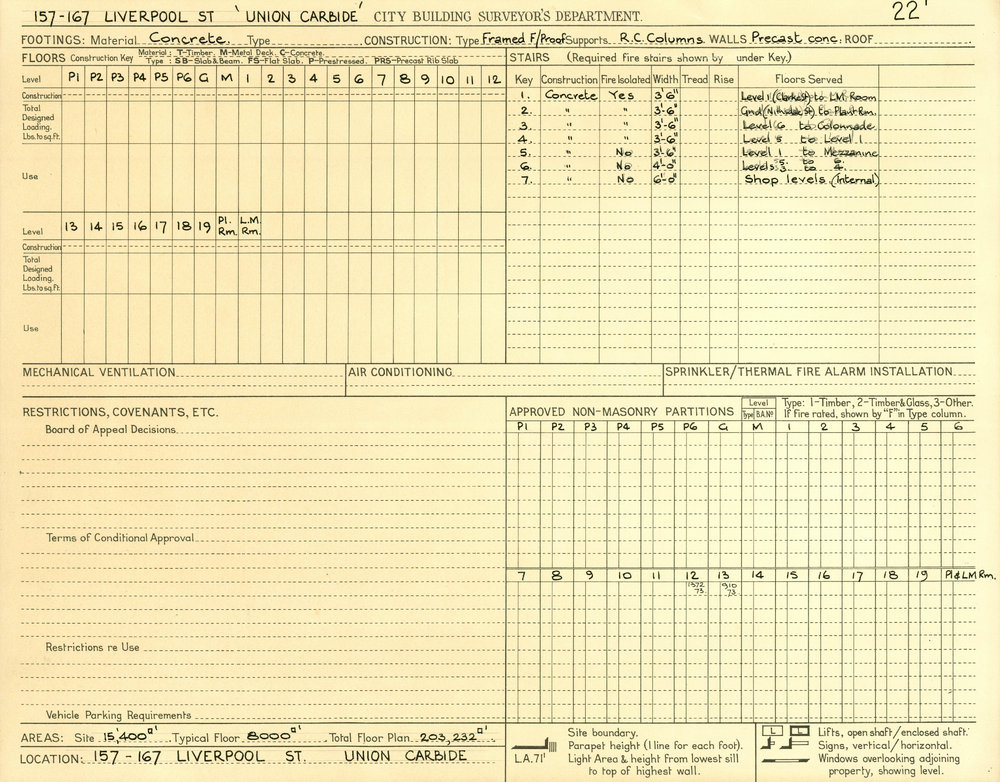 157-167 LIVERPOOL ST 'UNION CARBIDE' CITY BUILDING SURVEYOR'S DEPARTMENT. 22'
FOOTINGS: Material Concrete. Type CONSTRUCTION: Type Framed F/Proof Supports R.C. Columns WALLS Precast conc. ROOF
FLOORS Construction Key Material: T-Timber. M-Metal Deck. C-Concrete.
Type: SB-Slab & Beam. FS-Flat Slab. P-Prestressed. PRS-Precast Rib Slab
Level P1 P2 P3 P4 P5 P6 G M 1 2 3 4 5 6 7 8 9 10 11 12
Construction
Total
Designed
Loading.
Lbs.to sq.ft.
Use
Level 13 14 15 16 17 18 19 Pl. Rm. L.M. Rm.
Construction
Total
Designed
Loading.
Lbs.to sq.ft.
Use
STAIRS (Required fire stairs shown by under Key.)
Key Construction Fire Isolated Width Tread Rise Floors Served
1. Concrete Yes 3'6" Level 1 to LM Room
2. " " 3'-6" Gnd to Plant Rm.
3. " " 3'-6" Level G to Colonnade
4. " " 3'-6" Level 5 to Level 1
5. " No 3'6" Level 1 to Mezzanine
6. " No 4'-0" Levels 5. to 6.
3. to 4.
7. " No 6'-0" Shop levels (internal)
MECHANICAL VENTILATION AIR CONDITIONING SPRINKLER/THERMAL FIRE ALARM INSTALLATION
RESTRICTIONS, COVENANTS, ETC.
Board of Appeal Decisions.
Terms of Conditional Approval
Restrictions re Use
Vehicle Parking Requirements
APPROVED NON-MASONRY PARTITIONS Level Type B.A.Nº Type: 1-Timber, 2-Timber & Glass, 3-Other.
If fire rated, shown by "F" in Type column.
P1 P2 P3 P4 P5 P6 G M 1 2 3 4 5 6
7 8 9 10 11 12 13 14 15 16 17 18 19 Pl & LM Rm.
1372 910
73. 73.
AREAS: Site 15,400□' Typical Floor 8000□' Total Floor Plan 203,232□'
LOCATION: 157 - 167 LIVERPOOL ST. UNION CARBIDE
Site boundary.
Parapet height (1 line for each foot).
L.A.71' Light Area & height from lowest sill
to top of highest wall.
L L Lifts, open shaft/enclosed shaft.
Signs, vertical/horizontal.
Windows overlooking adjoining
property, showing level.